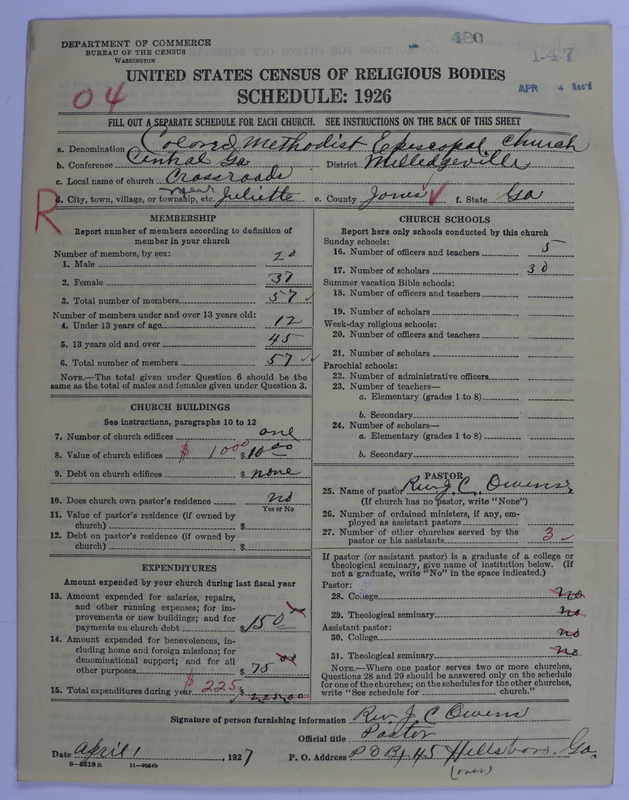 DEPARTMENT OF COMMERCE
BUREAU OF THE CENSUS
WASHINGTON
480
147
APR 4 Rec'd
04
UNITED STATES CENSUS OF RELIGIOUS BODIES
SCHEDULE: 1926
FILL OUT A SEPARATE SCHEDULE FOR EACH CHURCH. SEE INSTRUCTIONS ON THE BACK OF THIS SHEET
a. Denomination Colored Methodist Episcopal Church
b. Conference Central Ga District Milledgeville
c. Local name of church Crossroads
R d. City, town, village, or township, etc. near Juliette e. County Jones f. State Ga
MEMBERSHIP
Report number of members according to definition of
member in your church
Number of members, by sex:
1. Male 20
2. Female 37
3. Total number of members 57
Number of members under and over 13 years old:
4. Under 13 years of age 12
5. 13 years old and over 45
6. Total number of members 57
NOTE.—The total given under Question 6 should be the
same as the total of males and females given under Question 3.
CHURCH BUILDINGS
See instructions, paragraphs 10 to 12
7. Number of church edifices one
8. Value of church edifices $ 1000 $ 10 00
9. Debt on church edifices $ none
10. Does church own pastor's residence no
Yes or No
11. Value of pastor's residence (if owned by
church) $
12. Debt on pastor's residence (if owned by
church) $
EXPENDITURES
Amount expended by your church during last fiscal year
13. Amount expended for salaries, repairs,
and other running expenses; for im-
provements or new buildings; and for
payments on church debt $ 150
14. Amount expended for benevolences, in-
cluding home and foreign missions; for
denominational support; and for all
other purposes $ 75 00
15. Total expenditures during year $ 225 $ 225.00
CHURCH SCHOOLS
Report here only schools conducted by this church
Sunday schools:
16. Number of officers and teachers 5
17. Number of scholars 30
Summer vacation Bible schools:
18. Number of officers and teachers
19. Number of scholars
Week-day religious schools:
20. Number of officers and teachers
21. Number of scholars
Parochial schools:
22. Number of administrative officers
23. Number of teachers—
a. Elementary (grades 1 to 8)
b. Secondary
24. Number of scholars—
a. Elementary (grades 1 to 8)
b. Secondary
PASTOR
25. Name of pastor Rev. J. C. Owens
(If church has no pastor, write "None")
26. Number of ordained ministers, if any, em-
ployed as assistant pastors
27. Number of other churches served by the
pastor or his assistants 3
If pastor (or assistant pastor) is a graduate of a college or
theological seminary, give name of institution below. (If
not a graduate, write "No" in the space indicated.)
Pastor:
28. College no
29. Theological seminary no
Assistant pastor:
30. College no
31. Theological seminary no
NOTE.—Where one pastor serves two or more churches,
Questions 28 and 29 should be answered only on the schedule
for one of the churches; on the schedules for the other churches,
write "See schedule for church."
Signature of person furnishing information Rev. J. C Owens
Official title Pastor
Date April 1, 1927 P. O. Address P O Bx 45 Hillsboro. Ga.
8—5518 a 11—9564b (over)